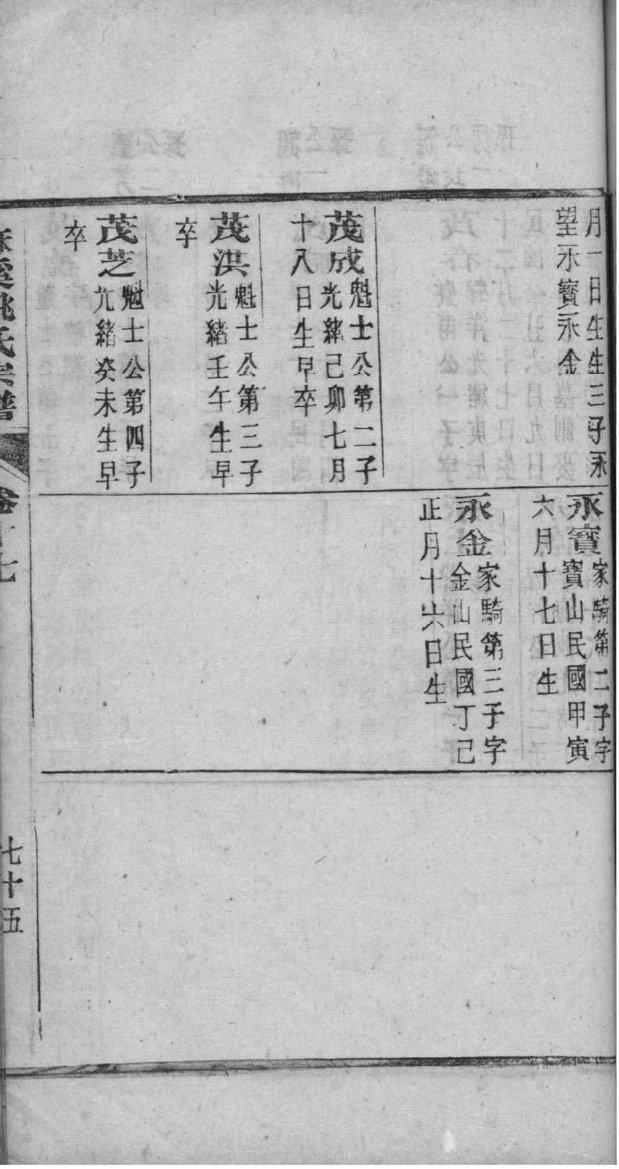 月一日生生三子永
望永寶永金
茂成魁士公第二子
光緒己卯七月
十八日生早卒
茂洪魁士公第三子
光緒壬午生早
卒
茂芝魁士公第四子
光緒癸未生早
卒
永寶家騎第二子字
寶山民國甲寅
六月十七日生
永金家騎第三子字
金山民國丁己
正月十六日生
溪姚氏宗譜
卷十七
七十五